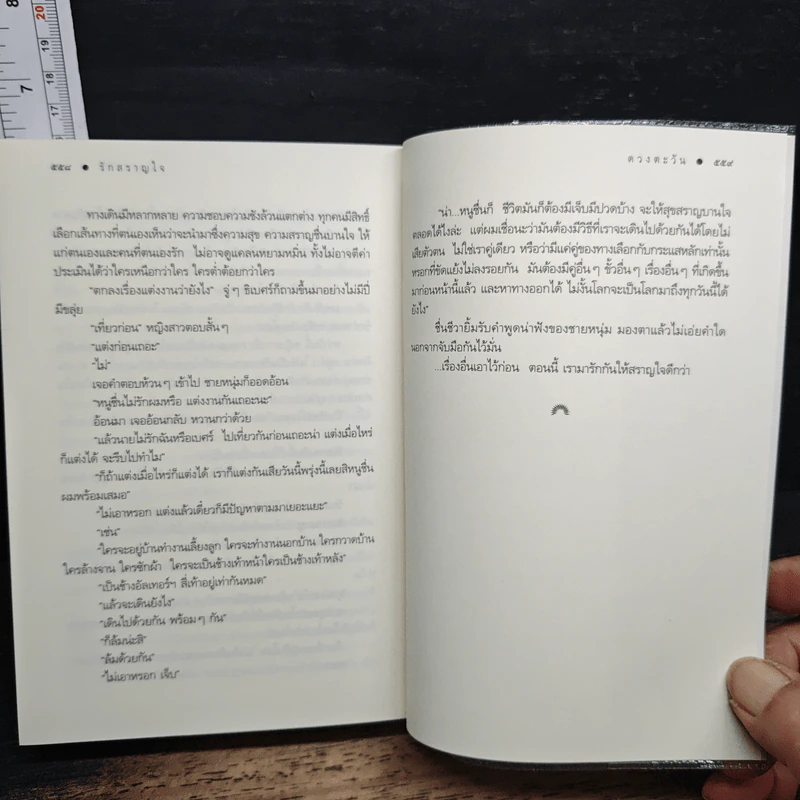 20
19
18
17
8
7
๕๕๘ ● รักสราญใจ
ทางเดินมีหลากหลาย ความชอบความชังล้วนแตกต่าง ทุกคนมีสิทธิ์
เลือกเส้นทางที่ตนเองเห็นว่าจะนำมาซึ่งความสุข ความสราญชื่นบานใจ ให้
แก่ตนเองและคนที่ตนเองรัก ไม่อาจดูแคลนหยามหมิ่น ทั้งไม่อาจตีค่า
ประเมินได้ว่าใครเหนือกว่าใคร ใครต่ำต้อยกว่าใคร
“ตกลงเรื่องแต่งงานว่ายังไง” จู่ๆ ธิเบศร์ก็ถามขึ้นมาอย่างไม่มีปี่
มีขลุ่ย
“เที่ยวก่อน” หญิงสาวตอบสั้นๆ
“แต่งก่อนเถอะ”
“ไม่”
เจอคำตอบห้วนๆ เข้าไป ชายหนุ่มก็ออดอ้อน
“หนูชื่นไม่รักผมหรือ แต่งงานกันเถอะนะ”
อ้อนมา เจออ้อนกลับ หวานกว่าด้วย
“แล้วนายไม่รักฉันหรือเบศร์ ไปเที่ยวกันก่อนเถอะน่า แต่งเมื่อไหร่
ก็แต่งได้ จะรีบไปทำไม”
“ก็ถ้าแต่งเมื่อไหร่ก็แต่งได้ เราก็แต่งกันเสียวันนี้พรุ่งนี้เลยสิหนูชื่น
ผมพร้อมเสมอ”
“ไม่เอาหรอก แต่งแล้วเดี๋ยวก็มีปัญหาตามมาเยอะแยะ”
“เช่น”
“ใครจะอยู่บ้านทำงานเลี้ยงลูก ใครจะทำงานนอกบ้าน ใครกวาดบ้าน
ใครล้างจาน ใครซักผ้า ใครจะเป็นช้างเท้าหน้าใครเป็นช้างเท้าหลัง”
“เป็นช้างอัลเทอร์ฯ สี่เท้าอยู่เท่ากันหมด”
“แล้วจะเดินยังไง”
“เดินไปด้วยกัน พร้อมๆ กัน”
“ก็ล้มน่ะสิ”
“ล้มด้วยกัน”
“ไม่เอาหรอก เจ็บ”
ดวงตะวัน ● ๕๕๙
“น่า...หนูชื่นก็ ชีวิตมันก็ต้องมีเจ็บมีปวดบ้าง จะให้สุขสราญบานใจ
ตลอดได้ไงล่ะ แต่ผมเชื่อนะว่ามันต้องมีวิธีที่เราจะเดินไปด้วยกันได้โดยไม่
เสียตัวตน ไม่ใช่เราคู่เดียว หรือว่ามีแค่คู่ของทางเลือกกับกระแสหลักเท่านั้น
หรอกที่ขัดแย้งไม่ลงรอยกัน มันต้องมีคู่อื่นๆ ขั้วอื่นๆ เรื่องอื่นๆ ที่เกิดขึ้น
มาก่อนหน้านี้แล้ว และหาทางออกได้ ไม่งั้นโลกจะเป็นโลกมาถึงทุกวันนี้ได้
ยังไง”
ชื่นชีวายิ้มรับคำพูดน่าฟังของชายหนุ่ม มองตาแล้วไม่เอ่ยคำใด
นอกจากจับมือกันไว้มั่น
...เรื่องอื่นเอาไว้ก่อน ตอนนี้ เรามารักกันให้สราญใจดีกว่า